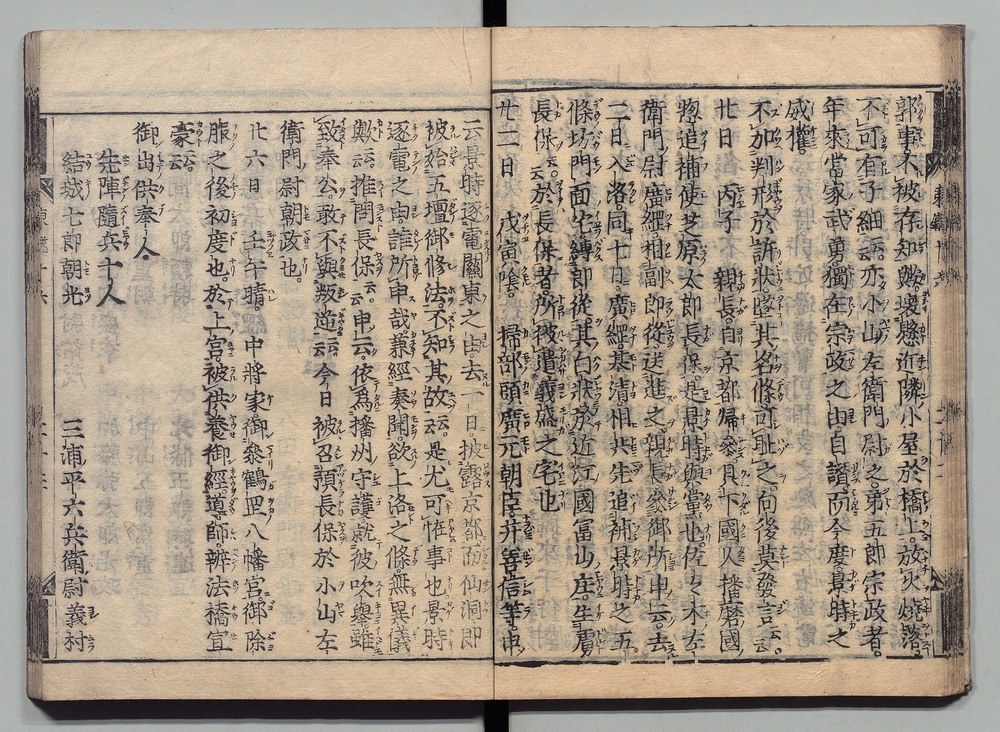 郭事不被存知歟。披懸近隣小屋於橋上。放火燒落。
不可有子細云云。亦小山左衛門尉之弟五郎宗政者。
年來當家武勇獨在宗政之由自讃。而今度景時之
威權。
不加判形於訴狀墜其名條。可耻之。向後莫發言云云。
廿日 丙子 親長自京都歸參。具下國人播磨國
惣追補使芝原太郎長保。是景時與黨也。佐々木左
衛門尉廣經相副郎從送進之。親長參御所申云。去
二日入洛。同七日廣經。基清相共先追補景時之五
條坊門面宅。縛郎從。其白狀於近江國冨山庄生虜
長保云云。於長保者。所被遣義盛之宅也
廿二日 戊寅陰。掃部頭廣元朝臣。并善信等。申
云。景時逐電關東之由。去一日披露京都。而仙洞即
被始五壇御修法。不知其故云云。是尤可恠事也。景時
逐電之由誰所申哉。兼經奏聞。欲上洛之條。無異儀
歟云云。推問長保云云。申云。依爲播州守護。就被吹舉雖
致奉公。敢不與叛逆云云。今日被召預長保於小山左
衛門尉朝政也。
廿六日 壬午晴。中將家。御參鶴罡八幡宮。御除
服之後初度也。於上宮被供養御經。導師。辨法橋宣
豪云云。
御出供奉人
先陣隨兵十人
結城七郎朝光 三浦平六兵衛尉義村
東鑑